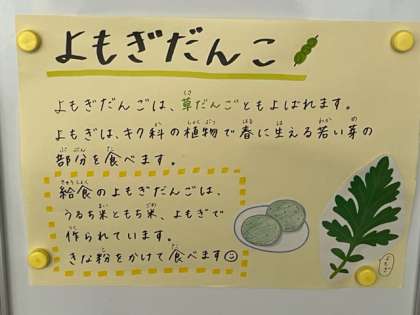 よもぎだんご
よもぎだんごは、草だんごともよばれます。
よもぎは、キク科の植物で春に生える若い芽の
部分を食べます。
給食のよもぎだんごは、
うるち米ともち米、よもぎで
作られています。
きな粉をかけて食べます☺
よもぎ